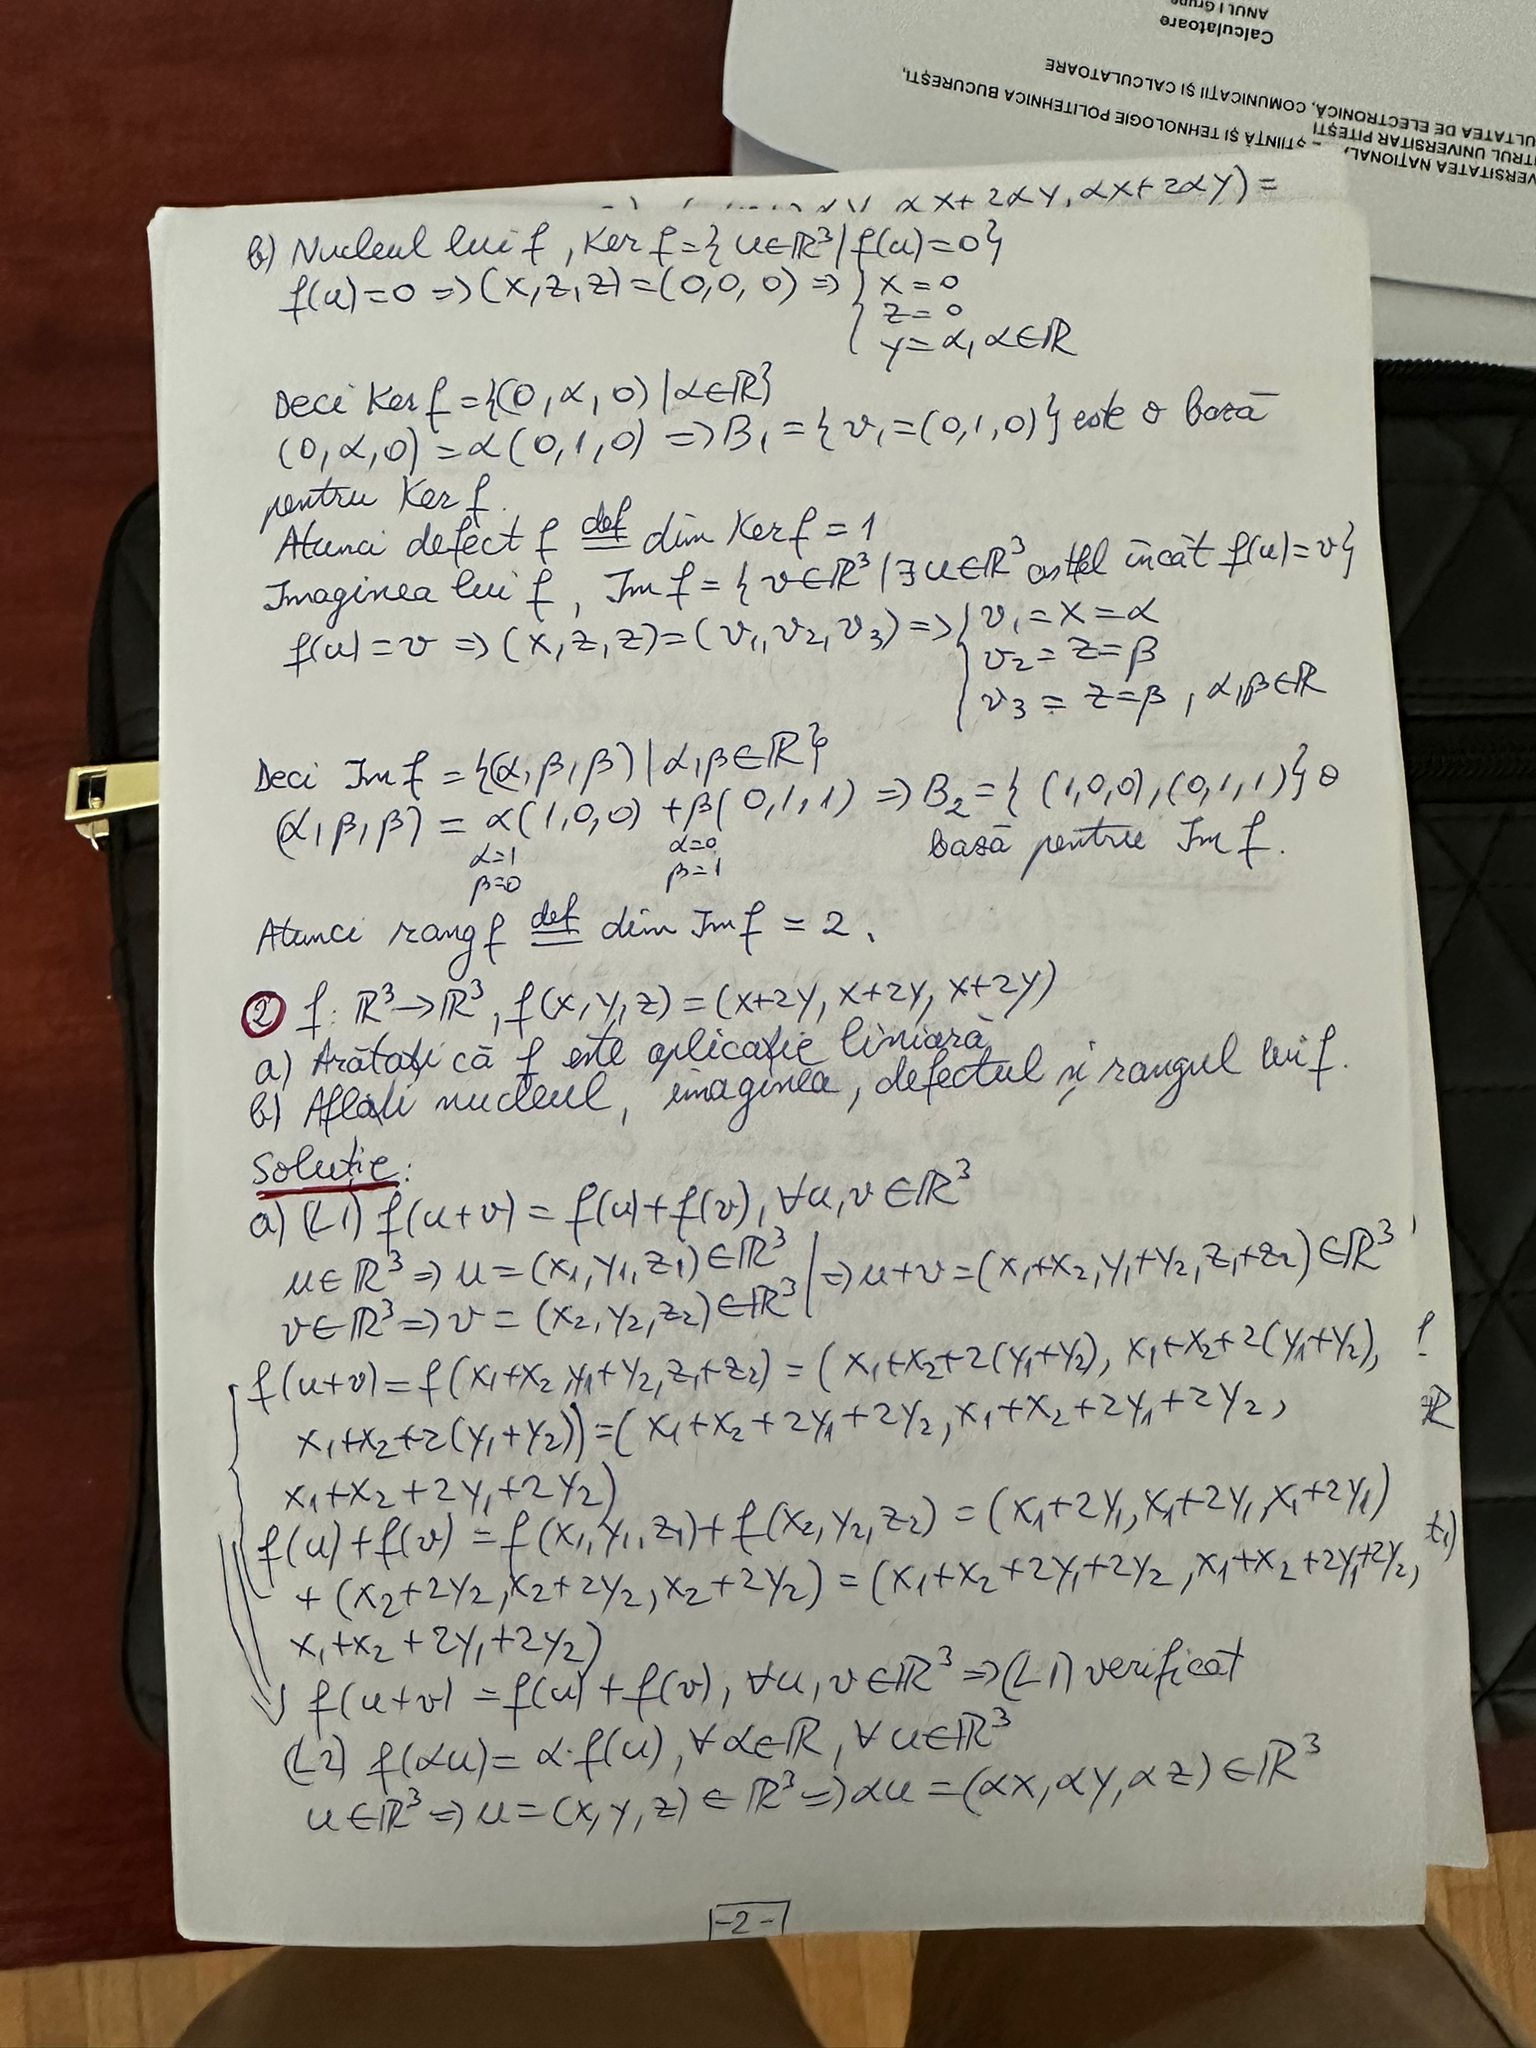 Calculatoare
ANUL I Grupa
ULTATEA DE ELECTRONICĂ, COMUNICAȚII ȘI CALCULATOARE
TRUL UNIVERSITAR PITEȘTI
VERSITATEA NAȚIONAL, – ȘTIINȚĂ ȘI TEHNOLOGIE POLITEHNICA BUCUREȘTI,
αx+2αy, αx+2αy) =
b) Nucleul lui f, Ker f = {u∈ℝ³ | f(u)=0}
f(u)=0 => (x,z,z)=(0,0,0) => { x=0
z=0
y=α, α∈ℝ
Deci Ker f = {(0,α,0) | α∈ℝ}
(0,α,0) = α(0,1,0) => B₁ = {v₁=(0,1,0)} este o bază
pentru Ker f.
Atunci defect f def dim Ker f = 1
Imaginea lui f, Im f = {v∈ℝ³ | ∃u∈ℝ³ astfel încât f(u)=v}
f(u)=v => (x,z,z)=(v₁,v₂,v₃) => { v₁=x=α
v₂=z=β
v₃=z=β, α,β∈ℝ
Deci Im f = {(α,β,β) | α,β∈ℝ}
(α,β,β) = α(1,0,0) + β(0,1,1) => B₂={(1,0,0),(0,1,1)} o
α=1 α=0 bază pentru Im f.
β=0 β=1
Atunci rang f def dim Im f = 2.
② f: ℝ³→ℝ³, f(x,y,z)=(x+2y, x+2y, x+2y)
a) Arătați că f este aplicație liniară
b) Aflați nucleul, imaginea, defectul și rangul lui f.
Soluție:
a) (L1) f(u+v) = f(u)+f(v), ∀u,v∈ℝ³
u∈ℝ³ => u=(x₁,y₁,z₁)∈ℝ³ | => u+v=(x₁+x₂,y₁+y₂,z₁+z₂)∈ℝ³
v∈ℝ³ => v=(x₂,y₂,z₂)∈ℝ³
f(u+v)=f(x₁+x₂,y₁+y₂,z₁+z₂)=(x₁+x₂+2(y₁+y₂), x₁+x₂+2(y₁+y₂),
x₁+x₂+2(y₁+y₂))=(x₁+x₂+2y₁+2y₂, x₁+x₂+2y₁+2y₂,
x₁+x₂+2y₁+2y₂)
f(u)+f(v)=f(x₁,y₁,z₁)+f(x₂,y₂,z₂)=(x₁+2y₁,x₁+2y₁,x₁+2y₁)
+(x₂+2y₂,x₂+2y₂,x₂+2y₂)=(x₁+x₂+2y₁+2y₂,x₁+x₂+2y₁+2y₂,
x₁+x₂+2y₁+2y₂)
f(u+v)=f(u)+f(v), ∀u,v∈ℝ³ => (L1) verificat
(L2) f(αu)=α·f(u), ∀α∈ℝ, ∀u∈ℝ³
u∈ℝ³ => u=(x,y,z)∈ℝ³ => αu=(αx,αy,αz)∈ℝ³
-2-